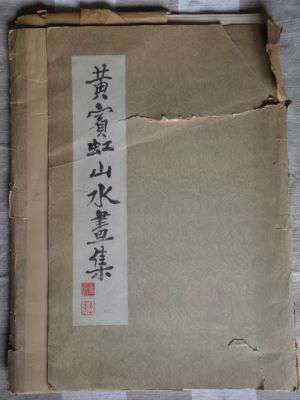 黄賓虹山水畫集